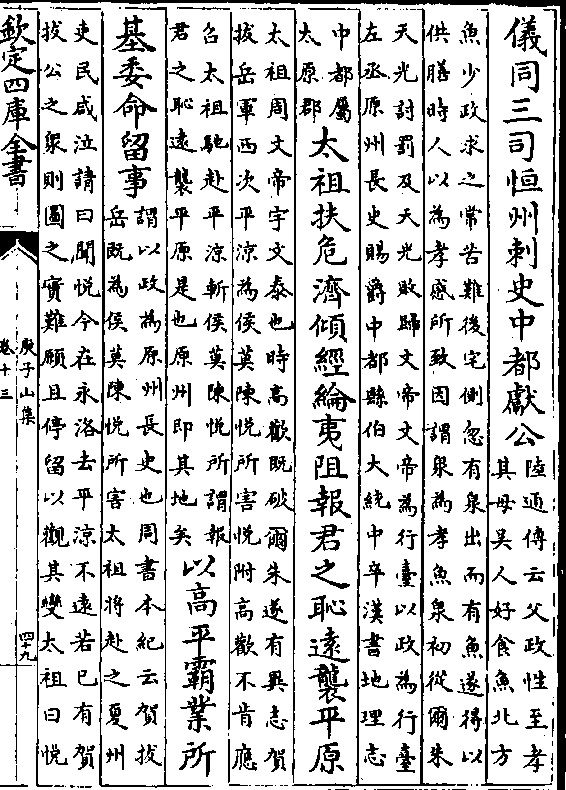 儀同三司恒州刺史中都獻公
陸通傳云父政性至孝
其母吳人好食魚北方
魚少政求之常苦難後宅側忽有泉出而有魚遂得以
供膳時人以為孝感所致因謂泉為孝魚泉初從爾朱
天光討罰及天光敗歸文帝文帝為行臺以政為行臺
左丞原州長史賜爵中都縣伯大統中卒漢書地理志
中都屬
太原郡
太祖扶危濟傾經綸夷阻報君之恥遠襲平原
太祖周文帝宇文泰也時高歡既破爾朱遂有異志賀
拔岳軍西次平涼為侯莫陳悦所害悦附高歡不肯應
召太祖馳赴平涼斬侯莫陳悦所謂報
君之恥遠襲平原是也原州即其地矣
以高平霸業所
基委命留事
謂以政為原州長史也周書本紀云賀拔
岳既為侯莫陳悦所害太祖將赴之夏州
吏民咸泣請曰聞悦今在永洛去平涼不遠若已有賀
拔公之衆則圖之實難願且停留以觀其變太祖曰悦
欽定四庫全書
庾子山集
卷十三
四十九